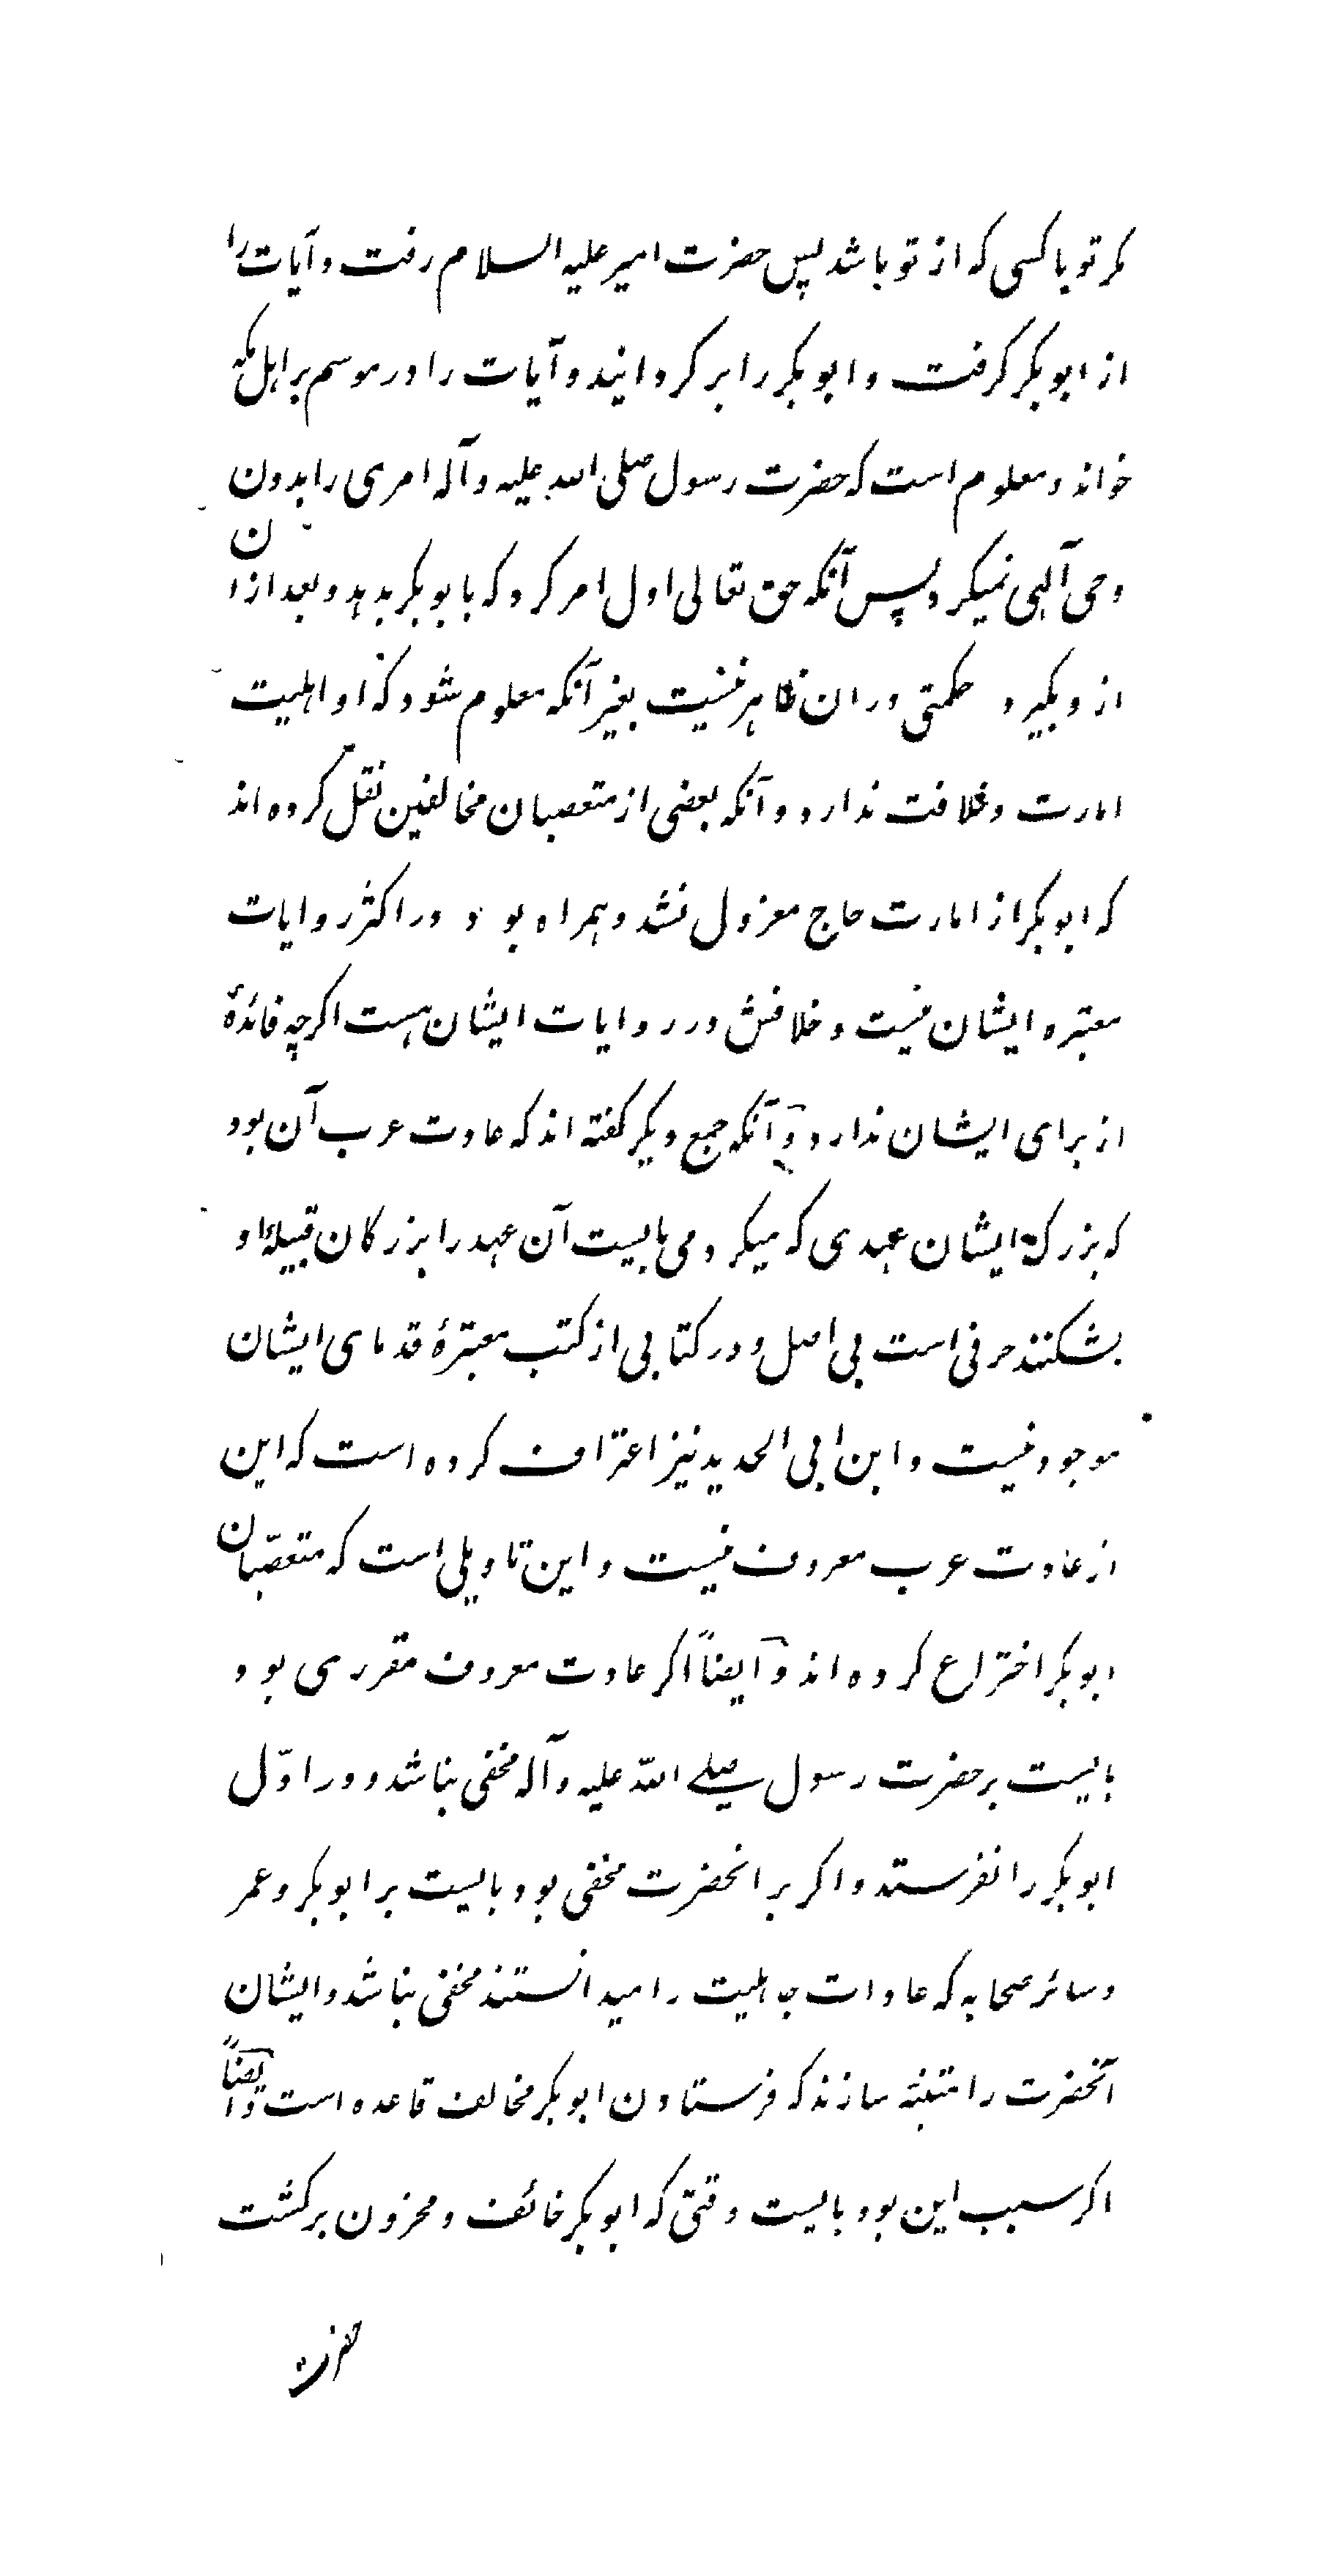 مکر تو یا کسی که از تو باشد پس حضرت امیر علیه السلام رفت و آیات را
از ابوبکر کرفت و ابوبکر را بر کردانید و آیات را در موسم بر اهل مکه
خواند و معلوم است که حضرت رسول صلی الله علیه و آله امری را بدون
وحی آلهی نمیکرد پس آنکه حق تعالی اول امر کرد که بابوبکر بدهد و بعد ازان
از و بکیرد حکمتی دران ظاهر نیست بغیر آنکه معلوم شود که او اهلیت
امارت و خلافت ندارد و آنکه بعضی از متعصبان مخالفین نقل کرده اند
که ابوبکر از امارت حاج معزول نشد و همراه بود در اکثر روایات
معتبره ایشان نیست و خلافش در روایات ایشان هست اکرچه فائدۀ
از برای ایشان ندارد و آنکه جمع دیکر کفته اند که عادت عرب آن بود
که بزرک ایشان عهدی که میکرد می بایست آن عهد را بزرکان قبیلۀ او
بشکنند حرفی است بی اصل و در کتابی از کتب معتبرۀ قدمای ایشان
موجود نیست و ابن ابی الحدید نیز اعتراف کرده است که این
از عادت عرب معروف نیست و این تاویلی است که متعصّبان
ابوبکر اختراع کرده اند و ایضاً اکر عادت معروف مقرری بود
بایست بر حضرت رسول صلے اللّه علیه و آله مخفی نباشد و در اوّل
ابوبکر را نفرستد و اکر بر انحضرت مخفی بود بایست بر ابوبکر و عمر
و سائر صحابه که عادات جاهلیت را میدانستند مخفی نباشد و ایشان
آنحضرت را متنبّه سازند که فرستادن ابوبکر مخالف قاعده است و ایضاً
اکر سبب این بود بایست وقتی که ابوبکر خائف و محزون برکشت
حضرت